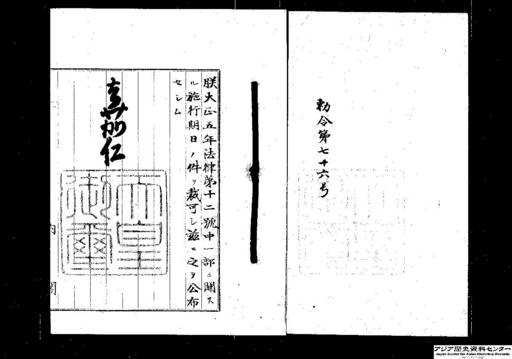 勅令第七十六号
朕大正五年法律第十二號中一部ニ關ス
ル施行期日ノ件ヲ裁可シ茲ニ之ヲ公布
セシム
嘉仁
天皇
御璽
内閣
アジア歴史資料センター
Japan Center for Asian Historical Records